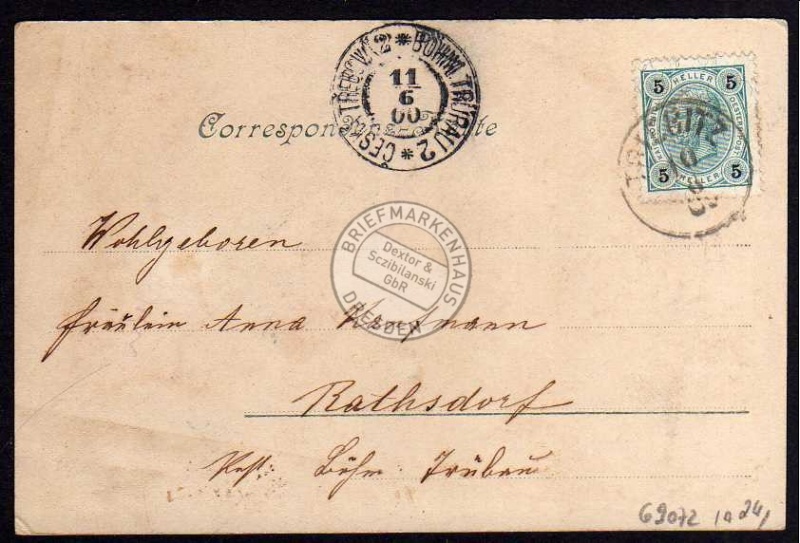 ČESKÁ TŘEBOVÁ 2 * BÖHM. TRÜBAU 2 *
11
6
00
5 HELLER 5
5 HELLER 5
TRIEBITZ
10
Correspondenz-Karte
Wohlgeboren
Fräulein Anna Hoffmann
Rathsdorf
Post Böhm Trübau
BRIEFMARKENHAUS
Dextor &
Sczibilanski
GbR
DRESDEN
69072